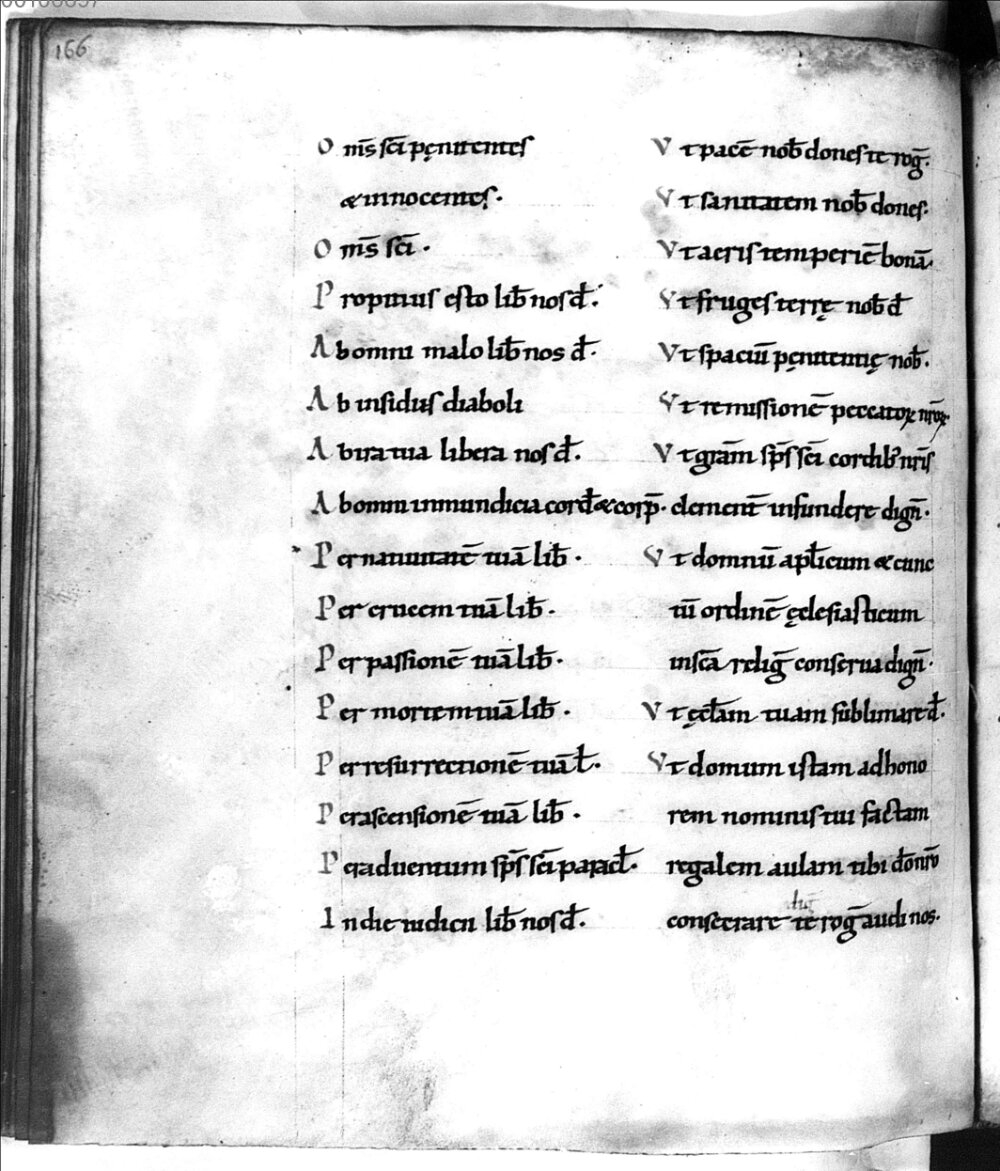 166
Om̅s sc̅i pęnitentes
& innocentes.
Om̅s sc̅i.
Propitius esto lib̅ nos d̅.
Ab omni malo lib̅ nos d̅.
Ab insidiis diaboli
Ab ira tua libera nos d̅.
Ab omni inmundicia cord̅ & corp̅.
Per natiuitate̅ tua̅ lib̅.
Per crucem tua̅ lib̅.
Per passione̅ tua̅ lib̅.
Per mortem tua̅ lib̅.
Per resurrectione̅ tua̅ l̅.
Per ascensione̅ tua̅ lib̅.
Per aduentum sp̅s sc̅i paracl̅.
In die iudicii lib̅ nos d̅.
Vt pace̅ nob̅ dones te rog̅.
Vt sanitatem nob̅ dones.
Vt aeris temperie̅ bona̅.
Vt fruges terrę nob̅ d̅
Vt spaciu̅ pęnitentię nob̅.
Vt remissione̅ peccatoꝝ nr̅oꝝ.
Vt gra̅m sp̅s sc̅i cordib; nr̅is
clement̅ infundere dign̅.
Vt domnu̅ apl̅icum & cunc
tu̅ ordine̅ ęclesiasticum
in sc̅a relig̅ conserua dign̅.
Vt ęccl̅am tuam sublimare d̅.
Vt domum istam ad hono
rem nominis tui factam
regalem aulam tibi d̅o nr̅o
consecrare te rog̅ audi nos.